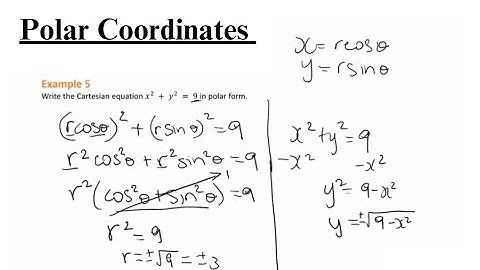 Polar Coordinates
x = rcosθ
y = rsinθ
Example 5
Write the Cartesian equation x² + y² = 9 in polar form.
(rcosθ)² + (rsinθ)² = 9
r²cos²θ + r²sin²θ = 9
r²(cos²θ + sin²θ) = 9
1
r² = 9
r = ±√9 = ±3
x² + y² = 9
-x² -x²
y² = 9 - x²
y = ±√9 - x²